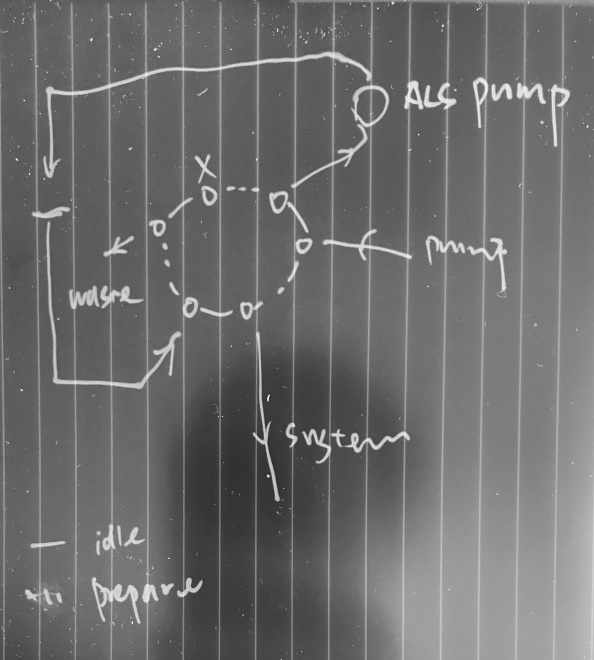 ALS pump
X
pump
waste
system
— idle
prepare